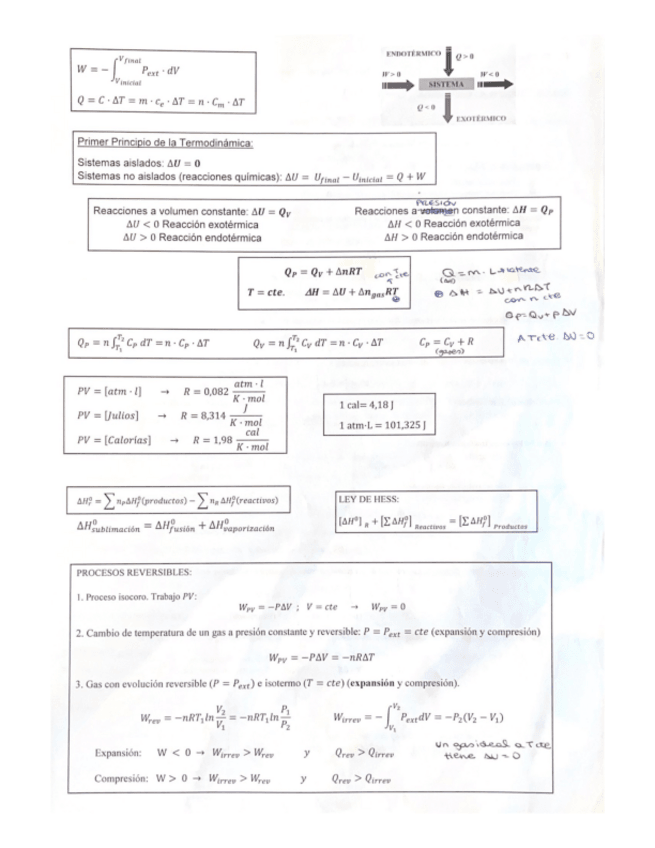 W = − ∫_{Vinicial}^{Vfinal} P_ext · dV
Q = C · ΔT = m · c_e · ΔT = n · C_m · ΔT
ENDOTÉRMICO Q > 0
W > 0 SISTEMA W < 0
Q < 0
EXOTÉRMICO
Primer Principio de la Termodinámica:
Sistemas aislados: ΔU = 0
Sistemas no aislados (reacciones químicas): ΔU = U_final − U_inicial = Q + W
PRESIÓN
Reacciones a volumen constante: ΔU = Q_V Reacciones a volumen constante: ΔH = Q_P
ΔU < 0 Reacción exotérmica ΔH < 0 Reacción exotérmica
ΔU > 0 Reacción endotérmica ΔH > 0 Reacción endotérmica
Q_P = Q_V + ΔnRT con T cte
T = cte. ΔH = ΔU + Δn_gas RT
Q = m · L → latente
ΔH = ΔU + nRΔT
con n cte
Qp = Qv + pΔV
A T cte ΔU = 0
Q_P = n ∫_{T_1}^{T_2} C_P dT = n · C_P · ΔT Q_V = n ∫_{T_1}^{T_2} C_V dT = n · C_V · ΔT C_P = C_V + R
(gases)
PV = [atm · l] → R = 0,082 atm · l / K · mol
PV = [Julios] → R = 8,314 J / K · mol
PV = [Calorías] → R = 1,98 cal / K · mol
1 cal= 4,18 J
1 atm·L = 101,325 J
ΔH_r^0 = ∑ n_P ΔH_f^0 (productos) − ∑ n_R ΔH_f^0 (reactivos)
ΔH^0_sublimación = ΔH^0_fusión + ΔH^0_vaporización
LEY DE HESS:
[ΔH^0]_R + [∑ ΔH_f^0]_Reactivos = [∑ ΔH_f^0]_Productos
PROCESOS REVERSIBLES:
1. Proceso isocoro. Trabajo PV:
W_PV = −PΔV ; V = cte → W_PV = 0
2. Cambio de temperatura de un gas a presión constante y reversible: P = P_ext = cte (expansión y compresión)
W_PV = −PΔV = −nRΔT
3. Gas con evolución reversible (P = P_ext) e isotermo (T = cte) (expansión y compresión).
W_rev = −nRT_1 ln V_2/V_1 = −nRT_1 ln P_1/P_2 W_irrev = − ∫_{V_1}^{V_2} P_ext dV = −P_2(V_2 − V_1)
Expansión: W < 0 → W_irrev > W_rev y Q_rev > Q_irrev
un gas ideal a T cte
tiene ΔU = 0
Compresión: W > 0 → W_irrev > W_rev y Q_rev > Q_irrev